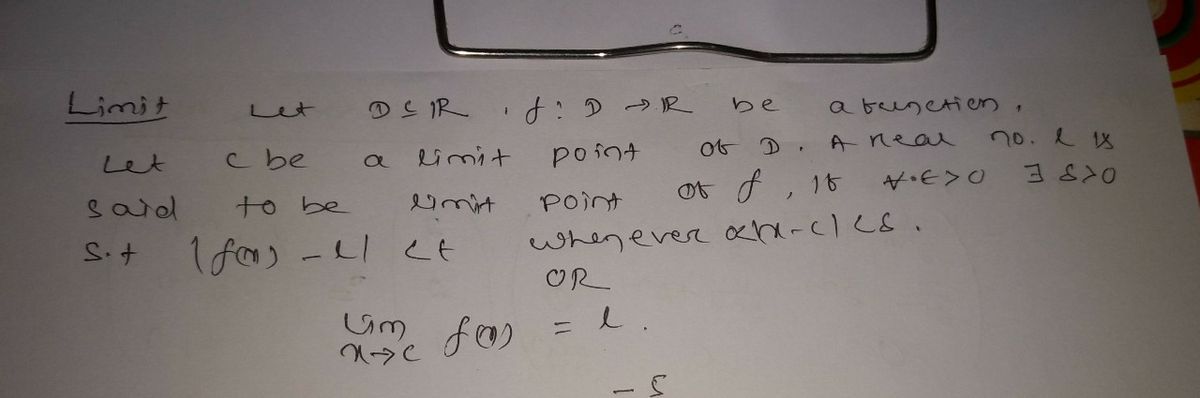 Limit Let D ⊆ ℝ, f: D → ℝ be a function,
Let c be a limit point of D. A real no. l is
said to be limit point of f, if ∀ ε>0 ∃ δ>0
s.t |f(x) - l| < ε whenever 0<|x-c|<δ.
OR
lim x→c f(x) = l.